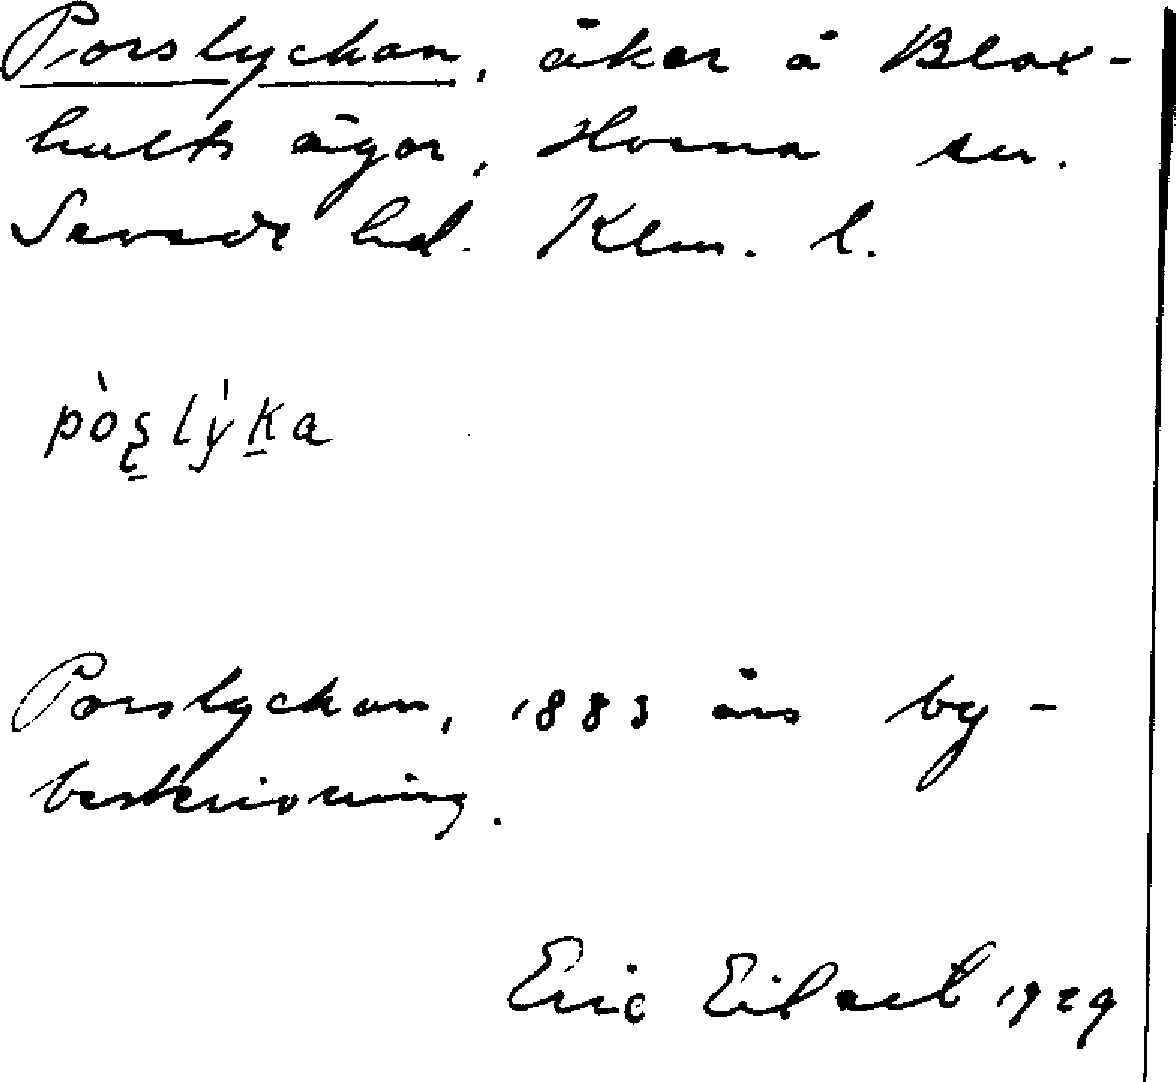 Porslyckan, åker å Blax-
hults ägor, Horna sn.
Sevede hd. Klm. l.
pòs̱lýḵa
Porslyckan, 1883 års by-
beskrivning.
Eric Eilert 1929